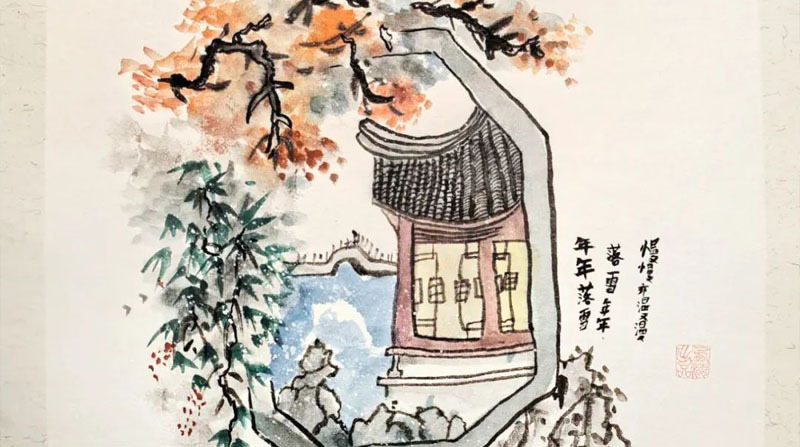 慢慢亦漫漫
落雪年年
年年落雪